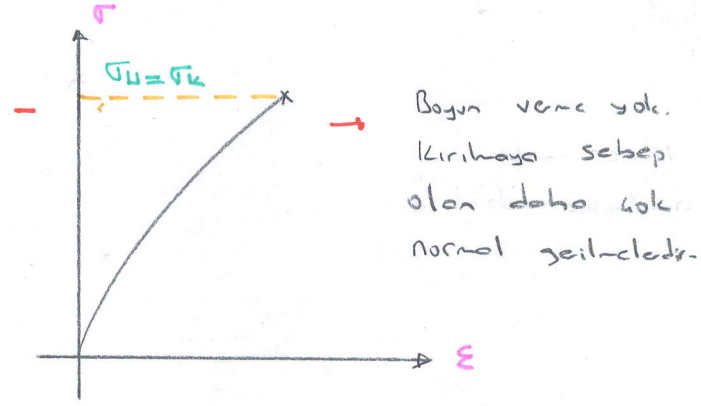 σ
σu=σk
Boyun verme yok.
Kırılmaya sebep
olan daha çok
normal gerilmelerdir.
ε